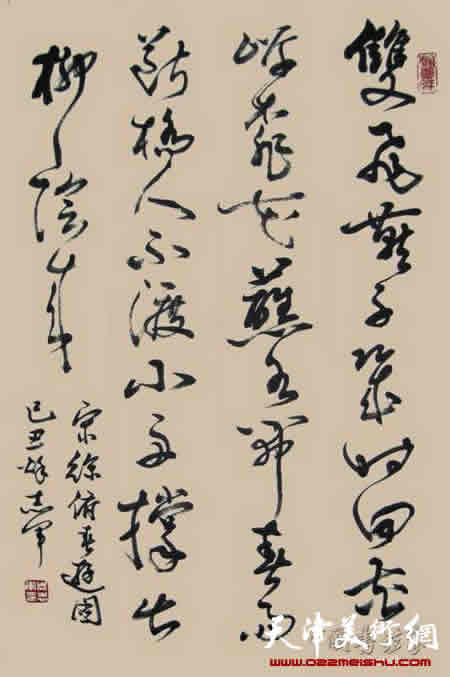 雙飛燕子幾時回夾
岸桃花蘸水開春雨
斷橋人不渡小舟撐出
柳陰來
宋徐俯春遊園
己丑 志軍
天津美術網
www.022meishu.com